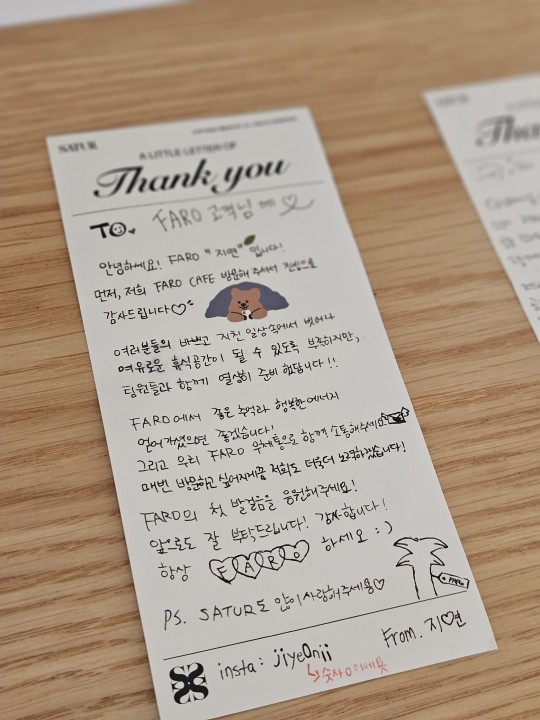 SATUR
A LITTLE LETTER OF
Thank you
TO
FARO 고객님께 ♡
안녕하세요! FARO "지연" 입니다!
먼저, 저희 FARO CAFE 방문해 주셔서 진심으로
감사드립니다♡
여러분들의 바쁘고 지친 일상속에서 벗어나
여유로운 휴식공간이 될 수 있도록 부족하지만,
팀원들과 함께 열심히 준비했답니다!!
FARO에서 좋은 추억과 행복한 에너지
얻어가셨으면 좋겠습니다!
그리고 우리 FARO 우체통으로 함께 소통해주세요
매번 방문하고 싶어지게끔 저희도 더욱더 노력하겠습니다!
FARO의 첫 발걸음을 응원해주세요!
앞으로도 잘 부탁드립니다! 감사합니다!
항상 FARO 하세요 :)
PS. SATUR도 많이 사랑해주세용♡
From. 지♡연
insta: jiye0nii
↳숫자0이에욧
Than